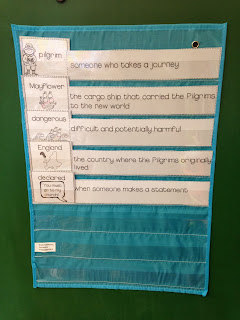 pilgrim
someone who takes a journey
Mayflower
the cargo ship that carried the Pilgrims
to the new world
dangerous
difficult and potentially harmful
England
the country where the Pilgrims originally
lived
declared
when someone makes a statement
You must
go to my
church!